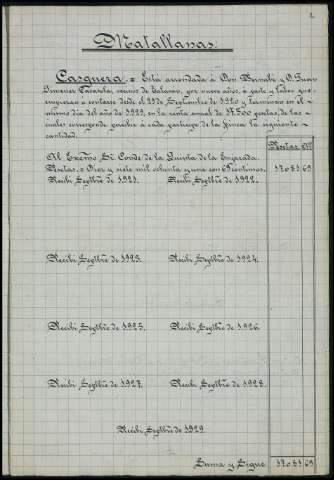 2
Matallanas.
Casquera.= Está arrendada á Don Bernabé y D. Juan
Jimenez Tarasola, vecinos de Catarau, por nueve años, á pasto y labor que
empezaron á contarse desde el 29 de Septiembre de 1920 y terminan en el
mismo dia del año de 1929, en la renta anual de 37.500 pesetas, de las
cuales corresponde percibir á cada partícipe de la finca la siguiente
cantidad.
Pesetas. Cts
Al Excmo. Sr. Conde de la Quinta de la Enjarada.
Pesetas.= Diez y siete mil ochenta y una con 69 céntimos. 17081 69
Recibí Septbre de 1921. Recibí Septbre de 1922.
Recibí Septbre de 1923. Recibí Septbre de 1924.
Recibí Septbre de 1925. Recibí Septbre de 1926
Recibí Septbre de 1927. Recibí Septbre de 1928.
Recibí Septbre de 1929
Suma y Sigue. 17081 69